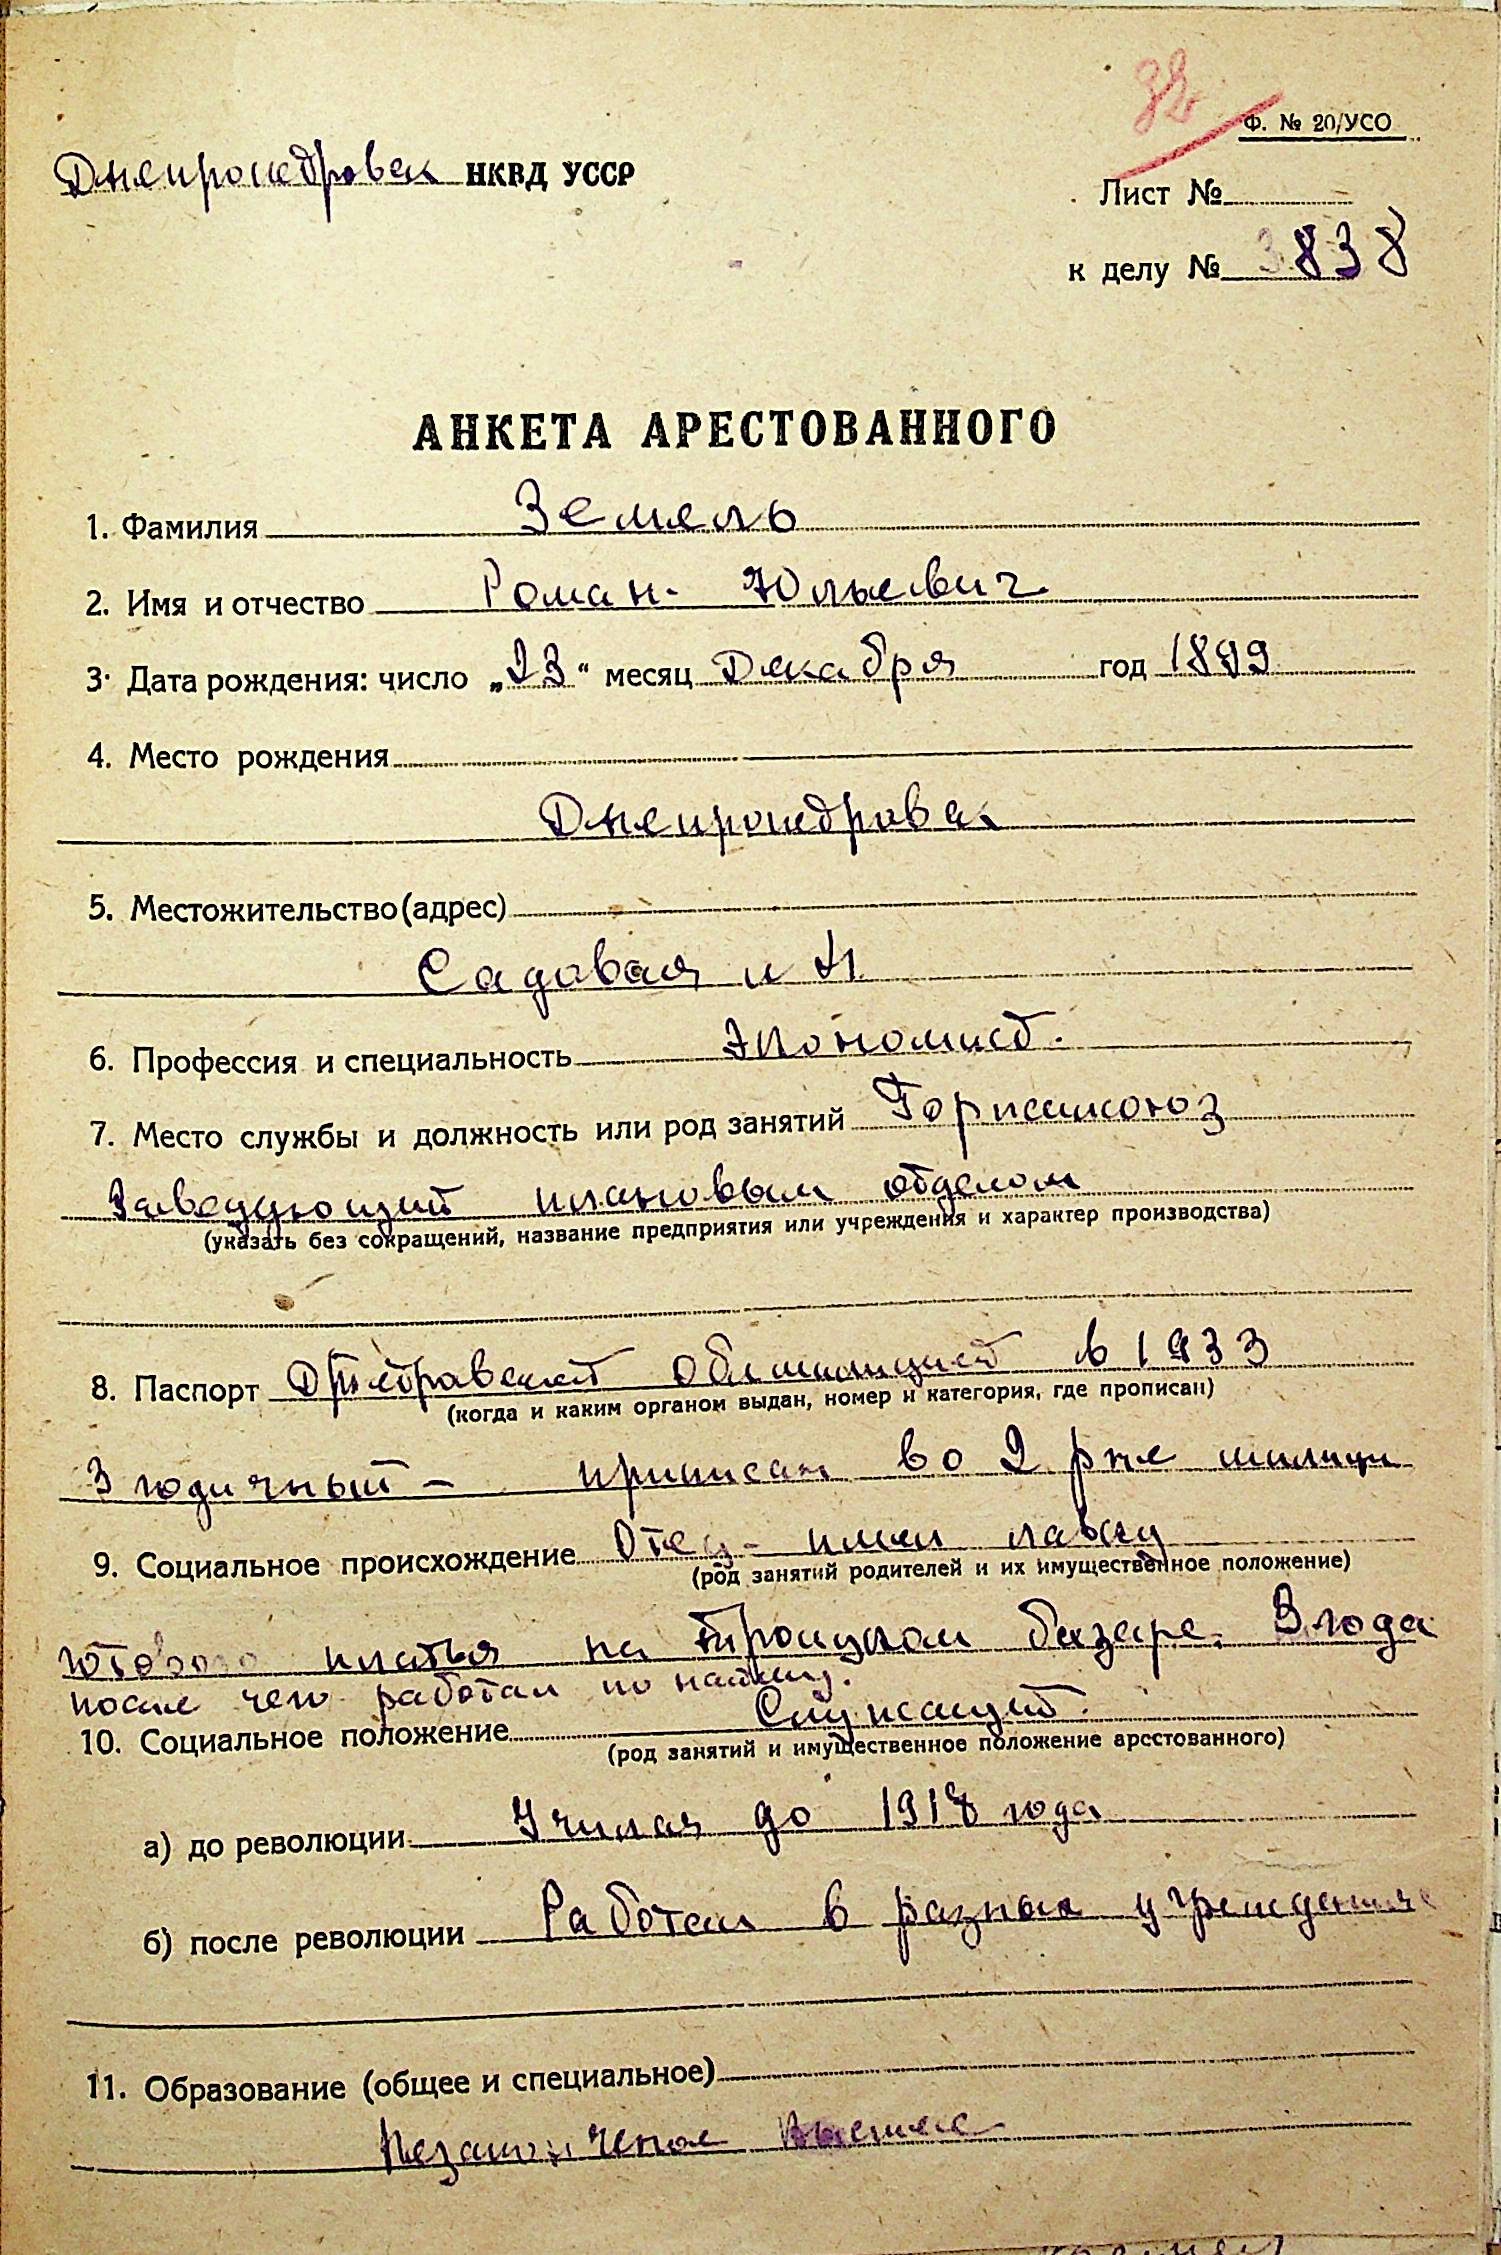 Ф. № 20/УСО
Днепропетровск НКВД УССР
Лист №
к делу № 3838
АНКЕТА АРЕСТОВАННОГО
1. Фамилия Земель
2. Имя и отчество Роман Юльевич
3. Дата рождения: число „23“ месяц Декабря год 1899
4. Место рождения
Днепропетровск
5. Местожительство (адрес)
Садовая
6. Профессия и специальность Экономист.
7. Место службы и должность или род занятий
Заведующий плановым отделом
(указать без сокращений, название предприятия или учреждения и характер производства)
8. Паспорт в 1933
(когда и каким органом выдан, номер и категория, где прописан)
3 годичный – приписан во 2 р-не милиции
9. Социальное происхождение Отец – имел лавку
(род занятий родителей и их имущественное положение)
готового платья на Троицком базаре. 3 года
после чего работал по найму.
10. Социальное положение Служащий.
(род занятий и имущественное положение арестованного)
а) до революции Учился до 1918 года
б) после революции Работал в разных учреждениях
11. Образование (общее и специальное)
Незаконченое высшее